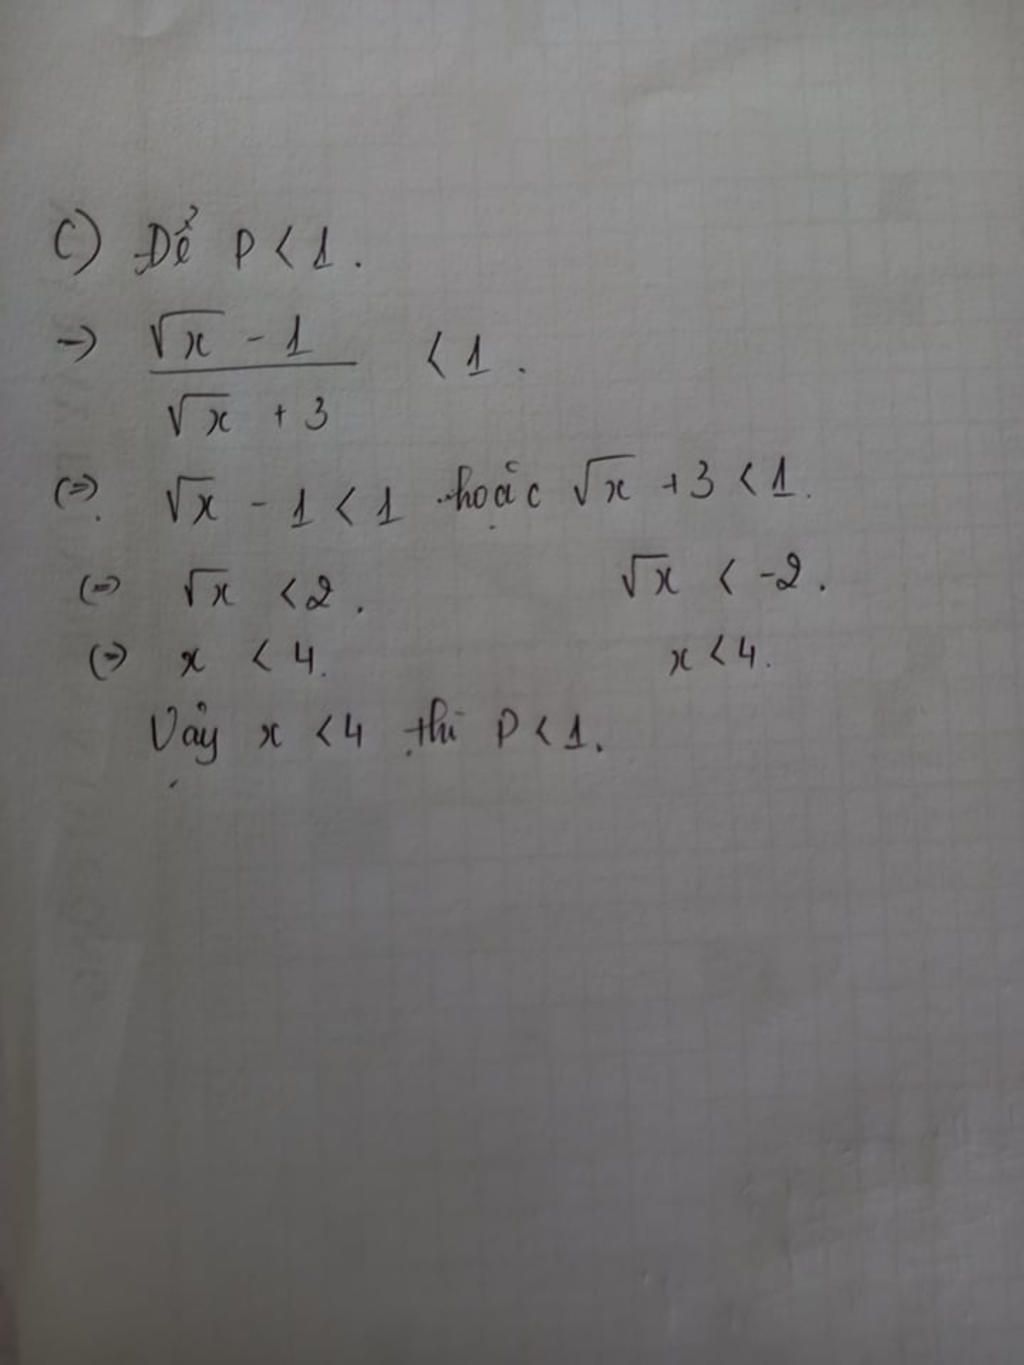 c) Để P < 1.
→ (√x - 1)/(√x + 3) < 1.
(=) √x - 1 < 1 hoặc √x + 3 < 1.
(=) √x < 2. √x < -2.
(=) x < 4. x < 4.
Vậy x < 4 thì P < 1.